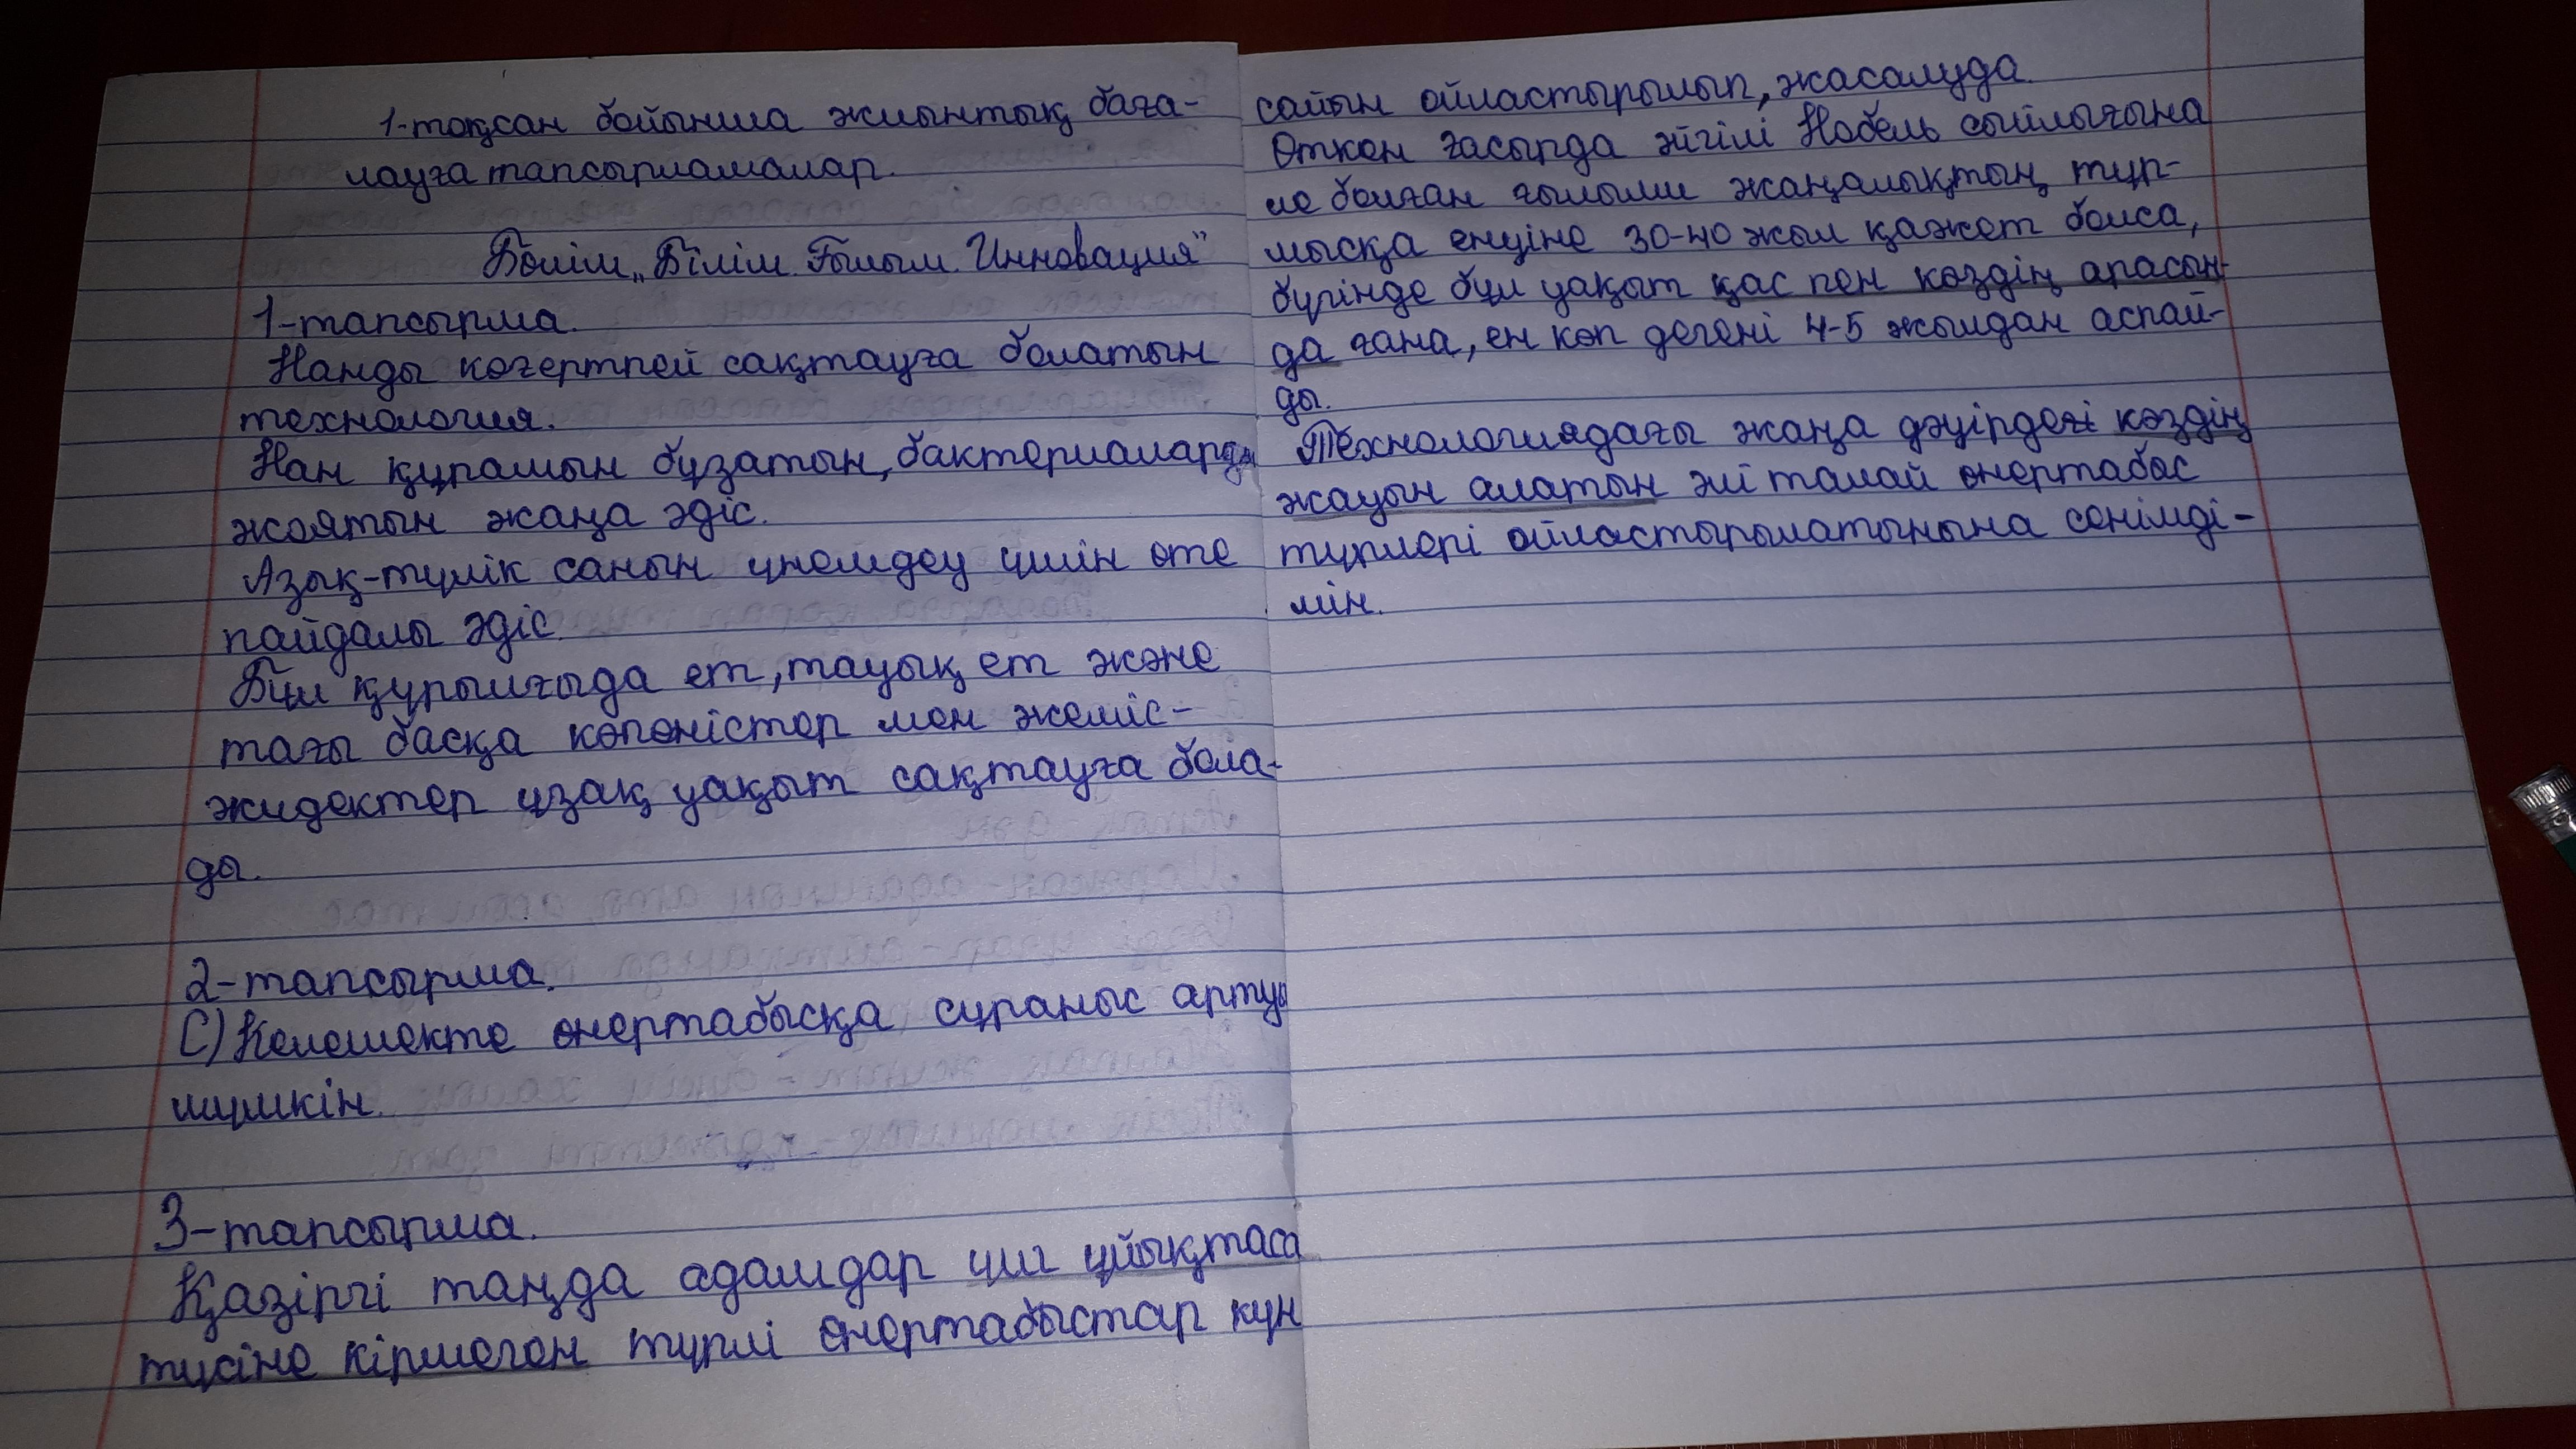 1-тоқсан бойынша жиынтық баға-
лауға тапсырламалар.
Бөлім „Білім. Ғылым. Инновация"
1-тапсырма.
Нанды көгертпей сақтауға болатын
технология.
Нан құрамын бұзатын, бактерияларды
жоятын жаңа әдіс.
Азық-түлік санын үнемдеу үшін өте
пайдалы әдіс.
Бұл құрылғыда ет, тауық ет және
тағы басқа көпөністер мен жеміс-
жидектер ұзақ уақыт сақтауға бола-
ды.
2-тапсырма.
С) Келешекте өнертабысқа сұраныс артуы
мүмкін.
3-тапсырма.
Қазіргі таңда адамдар үш ұйықтаса
түсіне кірмеген түрлі өнертабыстар күн
сайын ойластырылып, жасалуда.
Өткен ғасырда әйгілі Нобель сыйлығына
ие болған ғылыми жаңалықтың тұр-
мысқа енуіне 30-40 жыл қажет болса,
бүгінде бұл уақыт қас пен көздің арасын-
да ғана, ең көп дегені 4-5 жылдан аспай-
ды.
Технологиядағы жаңа дәуірдегі көздің
жауын алатын әлі талай өнертабыс
түрлері ойластырылатынына сенімді-
мін.